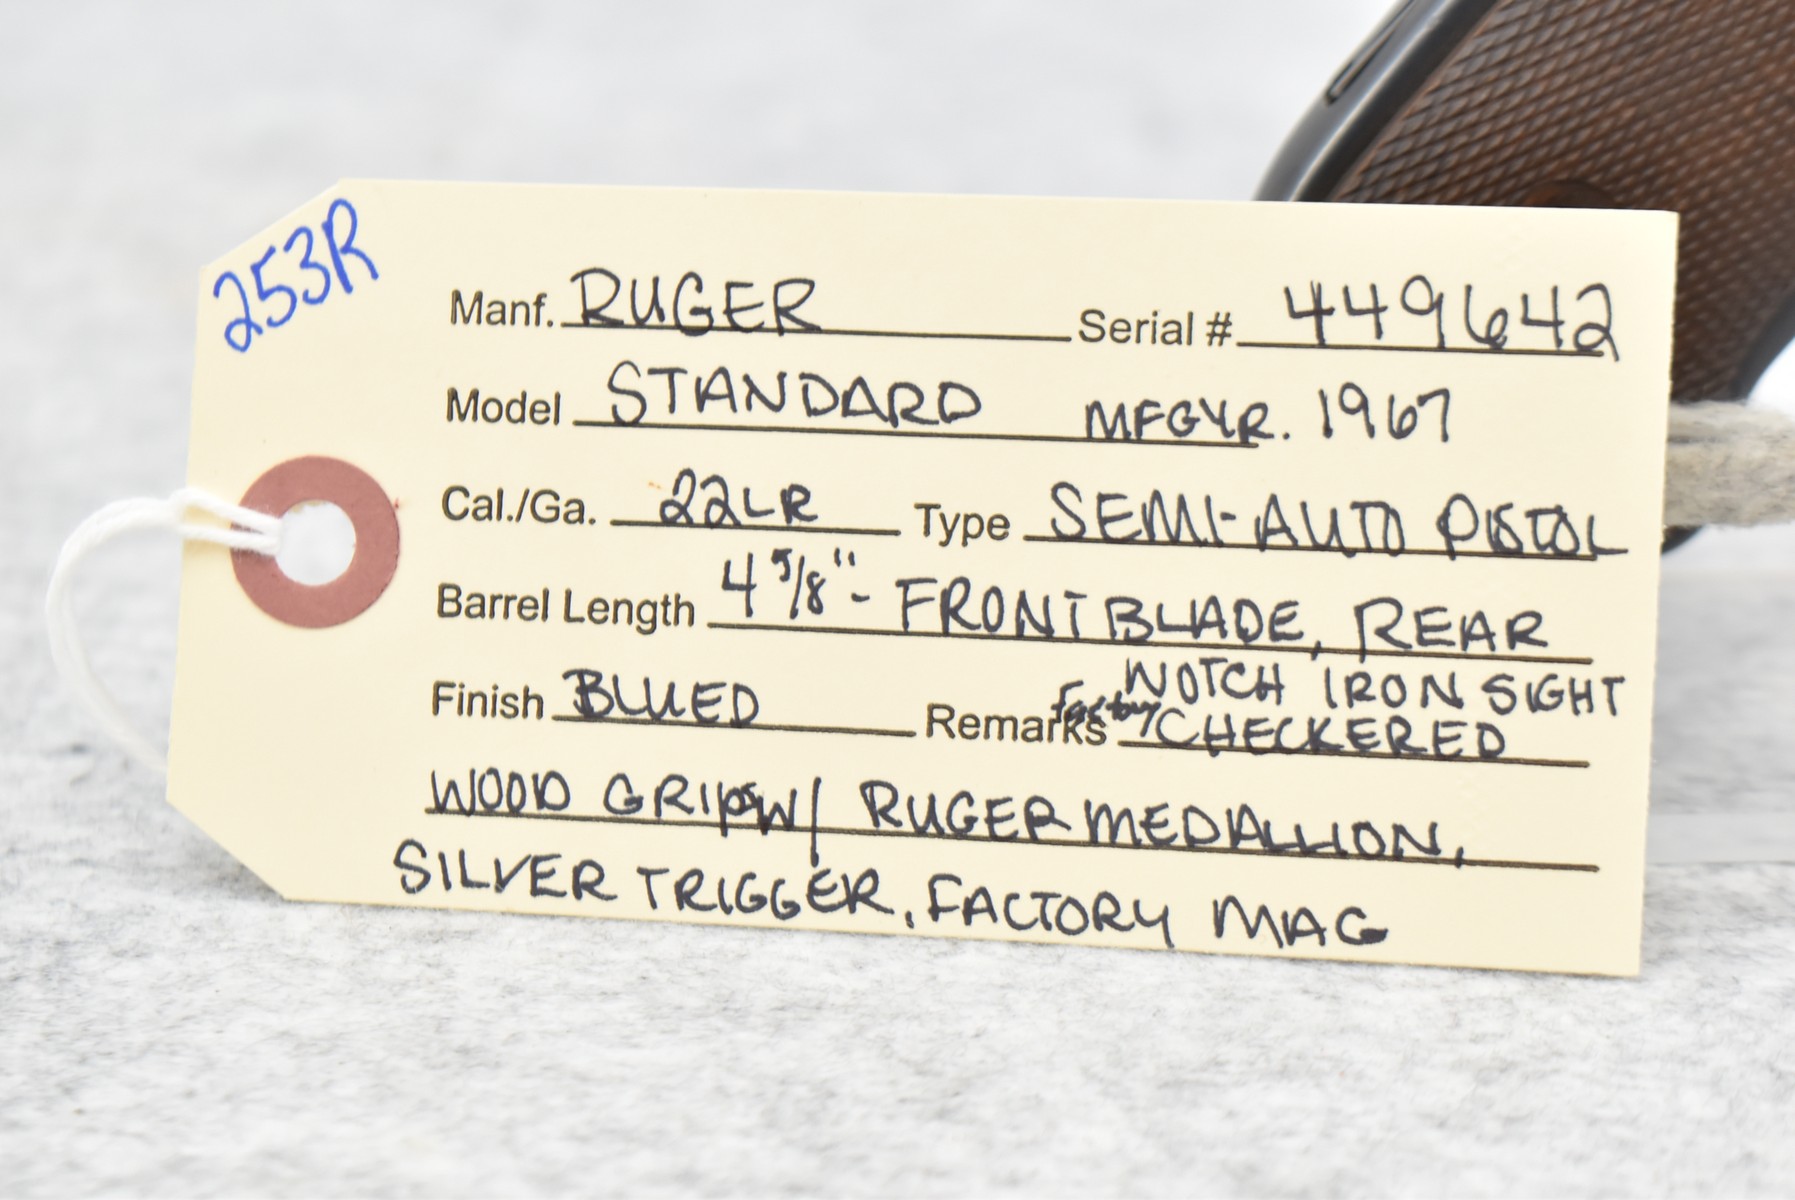 253R
Manf. RUGER Serial # 449642
Model STANDARD MFGYR. 1967
Cal./Ga. 22LR Type SEMI-AUTO PISTOL
Barrel Length 4 5/8" - FRONT BLADE, REAR
NOTCH IRON SIGHT
Finish BLUED Remarks factory CHECKERED
WOOD GRIPS W/ RUGER MEDALLION,
SILVER TRIGGER, FACTORY MAG